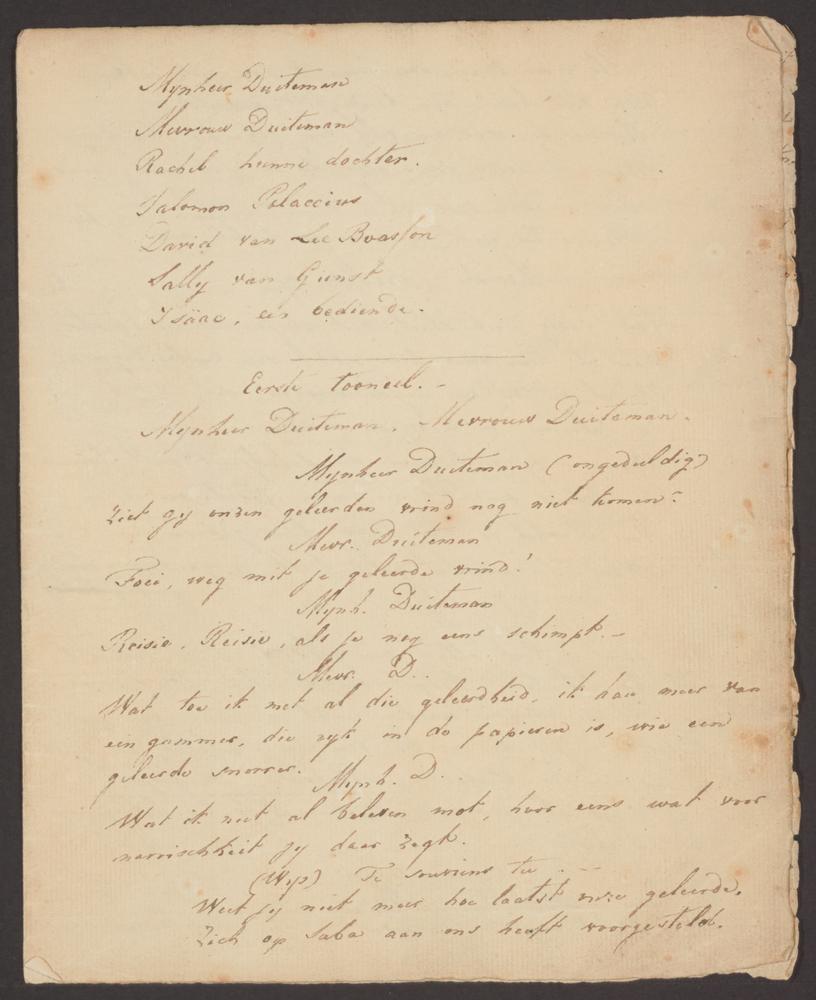 Mynheer Duiteman
Mevrouw Duiteman
Rachel hunne dochter.
Salomon Polaccius
David van Lee Boasson
Sally van Gunst
Isäac, een bediende.
Eerste tooneel. -
Mynheer Duiteman. Mevrouw Duiteman.
Mynheer Duiteman (ongeduldig)
Ziet gy onzen geleerden vrind nog niet komen?
Mevr. Duiteman
Foei, weg mit je geleerde vrind!
Mynh. Duiteman
Reisie, Reisie, als je nog eens schimpt. -
Mevr. D.
Wat toe ik met al die geleerdheid, ik hou meer van
ein gammer, die ryk in de papieren is, wie een
geleerde snorrer.
Mynh. D.
Wat ik niet al beleven mot, hoor eens wat voor
narrischkeit jy daar zegt.
(Wys) Te souviens tu
Weet jy niet meer hoe laatst onze geleerde.
Zich op Saba aan ons heeft voorgesteld.